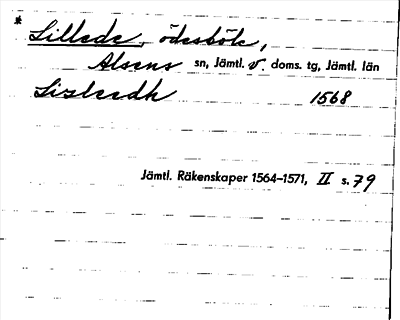 * Lillede, ödesböle,
Alsens sn, Jämtl. v. doms. tg, Jämtl. län
Lisleedh 1568
Jämtl. Räkenskaper 1564–1571, II s. 79